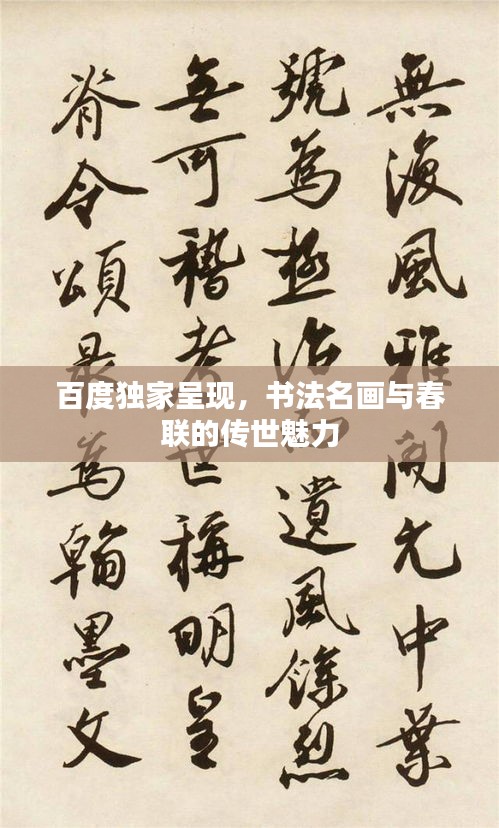 無復風雅開元中葉
號為極治遺風餘烈
無可稽考世稱明皇
脊令頌最為翰墨文
百度独家呈现，书法名画与春
联的传世魅力